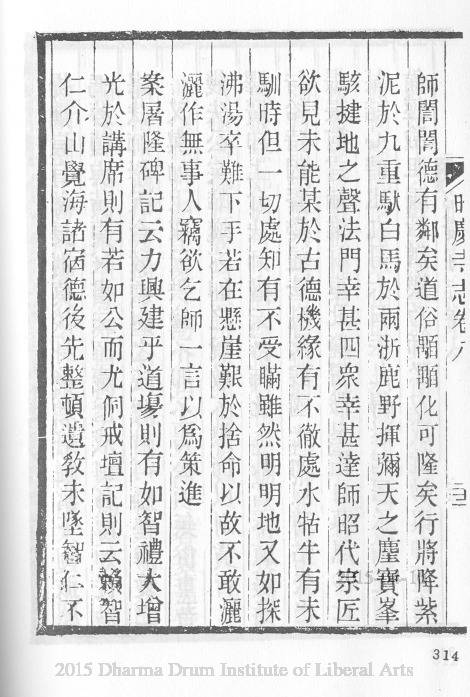 師誾誾德有鄰矣道俗顒顒化可隆矣行將降紫
泥於九重馱白馬於兩浙鹿野揮彌天之麈寶峯
駭揵地之聲法門幸甚四衆幸甚達師昭代宗匠
欲見未能某於古德機緣有不徹處水牯牛有未
馴時但一切處知有不受瞞雖然明明地又如探
沸湯卒難下手若在懸崖艱於捨命以故不敢灑
灑作無事人竊欲乞師一言以爲策進
案屠隆碑記云力興建乎道塲則有如智禮大增
光於講席則有若如公而尤侗戒壇記則云賴智
仁介山覺海諸宿德後先整頓遺教未墜智仁不
昭慶寺志卷八
314
2015 Dharma Drum Institute of Liberal Arts